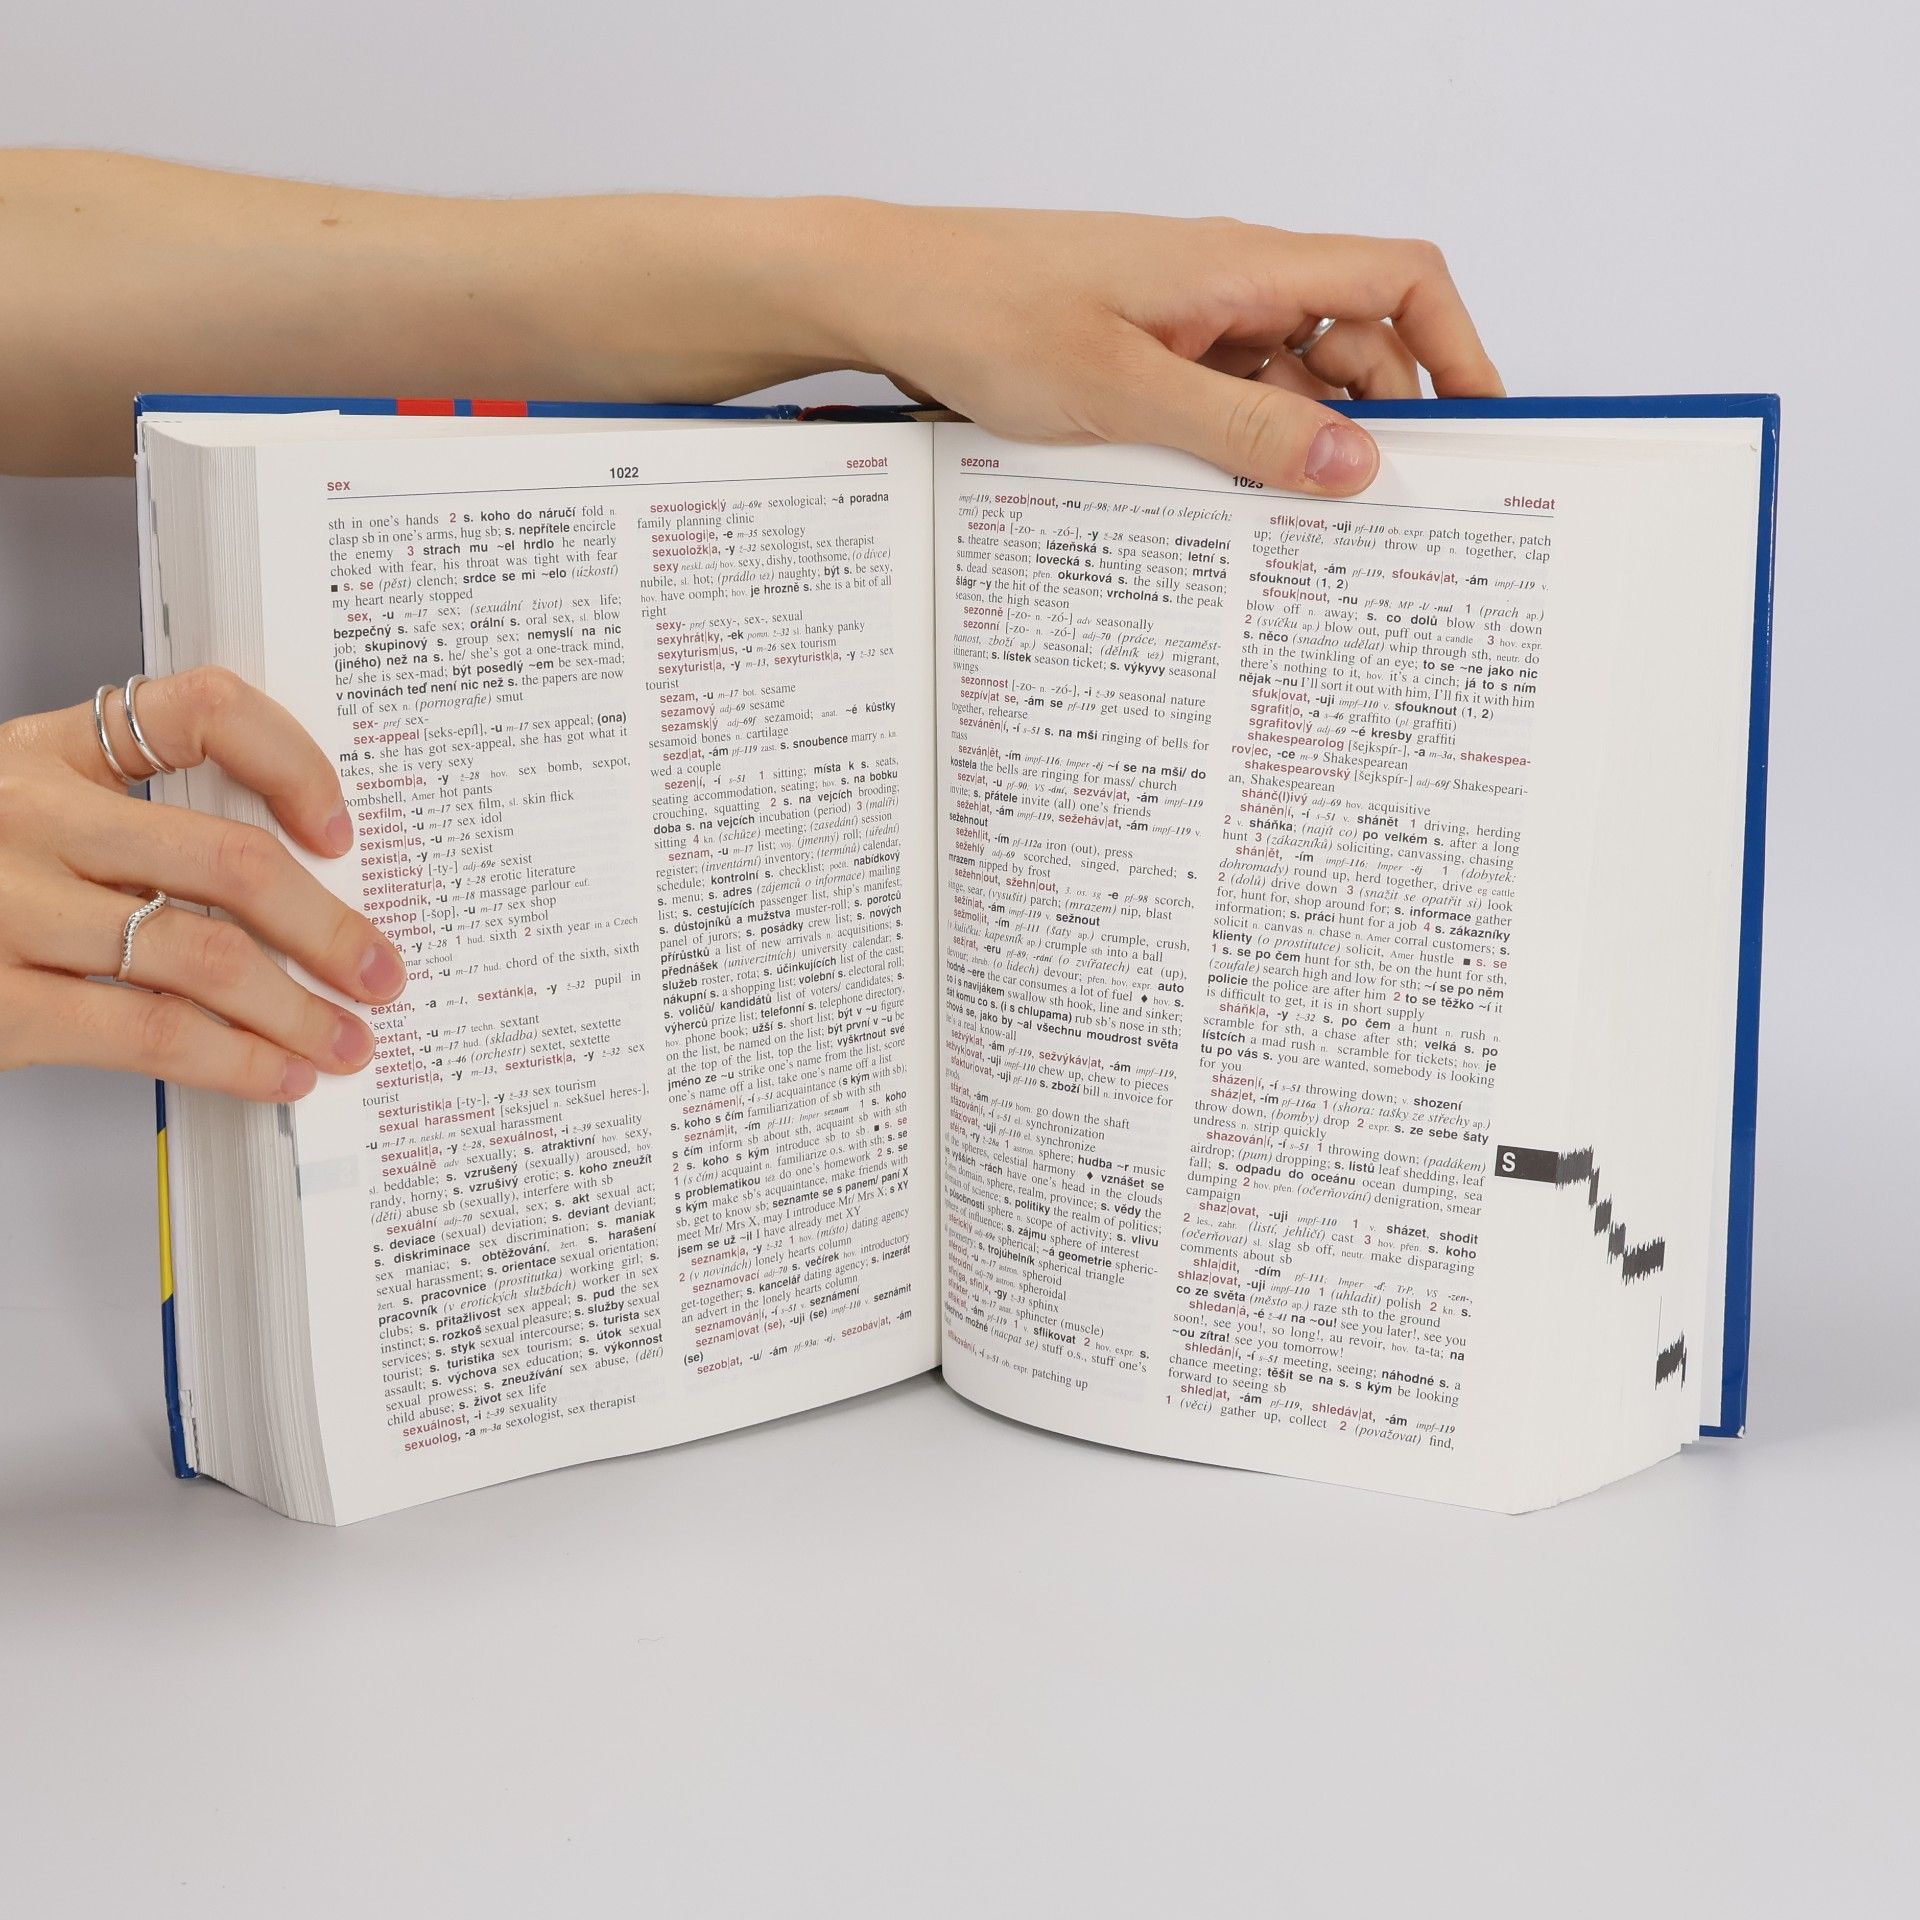 sex
1022
sezobat
sth in one's hands 2 s. koho do náručí fold n.
clasp sb in one's arms, hug sb; s. nepřítele encircle
the enemy 3 strach mu ~el hrdlo he nearly
choked with fear, his throat was tight with fear
■ s. se (pěst) clench; srdce se mi ~elo (úzkostí)
my heart nearly stopped
sex, -u m–17 sex; (sexuální život) sex life;
bezpečný s. safe sex; orální s. oral sex, sl. blow
job; skupinový s. group sex; nemyslí na nic
(jiného) než na s. he/ she's got a one-track mind,
he/ she is sex-mad; být posedlý ~em be sex-mad;
v novinách teď není nic než s. the papers are now
full of sex n. (pornografie) smut
sex- pref sex-
sex-appeal [seks-epíl], -u m–17 sex appeal; (ona)
má s. she has got sex-appeal, she has got what it
takes, she is very sexy
sexbomb|a, -y ž–28 hov. sex bomb, sexpot,
bombshell, Amer hot pants
sexfilm, -u m–17 sex film, sl. skin flick
sexidol, -u m–17 sex idol
sexism|us, -u m–26 sexism
sexist|a, -y m–13 sexist
sexistický [-ty-] adj–69e sexist
sexliteratur|a, -y ž–28 erotic literature
sexpodnik, -u m–18 massage parlour euf.
sexshop [-šop], -u m–17 sex shop
symbol, -u m–17 sex symbol
a, -y ž–28 1 hud. sixth 2 sixth year in a Czech
mar school
kord, -u m–17 hud. chord of the sixth, sixth
sextán, -a m–1, sextánk|a, -y ž–32 pupil in
'sexta'
sextant, -u m–17 techn. sextant
sextet, -u m–17 hud. (skladba) sextet, sextette
sextet|o, -a s–46 (orchestr) sextet, sextette
sexturist|a, -y m–13, sexturistk|a, -y ž–32 sex
tourist
sexturistik|a [-ty-], -y ž–33 sex tourism
sexual harassment [seksjuel n. sekšuel heres-],
-u m–17 n. neskl. m sexual harassment
sexualit|a, -y ž–28, sexuálnost, -i ž–39 sexuality
sexuálně adv sexually; s. atraktivní hov. sexy,
sl. beddable; s. vzrušený (sexually) aroused, hov.
randy, horny; s. vzrušivý erotic; s. koho zneužít
(děti) abuse sb (sexually), interfere with sb
sexuální adj–70 sexual, sex; s. akt sexual act;
s. deviace (sexual) deviation; s. deviant deviant;
s. diskriminace sex discrimination; s. maniak
sex maniac; s. obtěžování, žert. s. harašení
sexual harassment; s. orientace sexual orientation;
žert. s. pracovnice (prostitutka) working girl; s.
pracovník (v erotických službách) worker in sex
clubs; s. přitažlivost sex appeal; s. pud the sex
instinct; s. rozkoš sexual pleasure; s. služby sexual
services; s. styk sexual intercourse; s. turista sex
tourist; s. turistika sex tourism; s. útok sexual
assault; s. výchova sex education; s. výkonnost
sexual prowess; s. zneužívání sex abuse, (dětí)
child abuse; s. život sex life
sexuálnost, -i ž–39 sexuality
sexuolog, -a m–3a sexologist, sex therapist
sexuologick|ý adj–69e sexological; ~á poradna
family planning clinic
sexuologi|e, -e m–35 sexology
sexuoložk|a, -y ž–32 sexologist, sex therapist
sexy neskl. adj hov. sexy, dishy, toothsome, (o dívce)
nubile, sl. hot; (prádlo též) naughty; být s. be sexy,
hov. have oomph; hov. je hrozně s. she is a bit of all
right
sexy- pref sexy-, sex-, sexual
sexyhrát|ky, -ek pomn. ž–32 sl. hanky panky
sexyturism|us, -u m–26 sex tourism
sexyturist|a, -y m–13, sexyturistk|a, -y ž–32 sex
tourist
sezam, -u m–17 bot. sesame
sezamový adj–69 sesame
sezamsk|ý adj–69f sezamoid; anat. ~é kůstky
sesamoid bones n. cartilage
sezd|at, -ám pf–119 zast. s. snoubence marry n. kn.
wed a couple
sezen|í, -í s–51 1 sitting; místa k s. seats,
seating accommodation, seating; hov. s. na bobku
crouching, squatting 2 s. na vejcích brooding;
doba s. na vejcích incubation (period) 3 (malíři)
sitting 4 kn. (schůze) meeting; (zasedání) session
seznam, -u m–17 list; voj. (jmenný) roll; (úřední)
register; (inventární) inventory; (termínů) calendar,
schedule; kontrolní s. checklist; počít. nabídkový
s. menu; s. adres (zájemců o informace) mailing
list; s. cestujících passenger list, ship's manifest;
s. důstojníků a mužstva muster-roll; s. porotců
panel of jurors; s. posádky crew list; s. nových
přírůstků a list of new arrivals n. acquisitions; s.
přednášek (univerzitních) university calendar; s.
služeb roster, rota; s. účinkujících list of the cast;
nákupní s. a shopping list; volební s. electoral roll;
s. voličů/ kandidátů list of voters/ candidates; s.
výherců prize list; telefonní s. telephone directory,
hov. phone book; užší s. short list; být v ~u figure
on the list, be named on the list; být první v ~u be
at the top of the list, top the list; vyškrtnout své
jméno ze ~u strike one's name from the list, score
one's name off a list, take one's name off a list
seznámen|í, -í s–51 acquaintance (s kým with sb);
s. koho s čím familiarization of sb with sth
seznám|it, -ím pf–111: Imper seznam 1 s. koho
s čím inform sb about sth, acquaint sb with sth
2 s. koho s kým introduce sb to sb ■ s. se
1 (s čím) acquaint n. familiarize o.s. with sth; s. se
s problematikou též do one's homework 2 s. se
s kým make sb's acquaintance, make friends with
sb, get to know sb; seznamte se s panem/ paní X
meet Mr/ Mrs X, may I introduce Mr/ Mrs X; s XY
jsem se už ~il I have already met XY
seznamk|a, -y ž–32 1 hov. (místo) dating agency
2 (v novinách) lonely hearts column
seznamovací adj–70 s. večírek hov. introductory
get-together; s. kancelář dating agency; s. inzerát
an advert in the lonely hearts column
seznamován|í, -í s–51 v. seznámení
seznam|ovat (se), -uji (se) impf–110 v. seznámit
(se)
sezob|at, -u/ -ám pf–93a; -ej, sezobáv|at, -ám
sezona
1023
shledat
impf–119, sezob|nout, -nu pf–98; MP -l/ -nul (o slepicích:
zrní) peck up
sezon|a [-zo- n. -zó-], -y ž–28 season; divadelní
s. theatre season; lázeňská s. spa season; letní s.
summer season; lovecká s. hunting season; mrtvá
s. dead season; přen. okurková s. the silly season;
šlágr ~y the hit of the season; vrcholná s. the peak
season, the high season
sezonně [-zo- n. -zó-] adv seasonally
sezonní [-zo- n. -zó-] adj–70 (práce, nezaměst-
nanost, zboží ap.) seasonal; (dělník též) migrant,
itinerant; s. lístek season ticket; s. výkyvy seasonal
swings
sezonnost [-zo- n. -zó-], -i ž–39 seasonal nature
sezpív|at se, -ám se pf–119 get used to singing
together, rehearse
sezváněn|í, -í s–51 s. na mši ringing of bells for
mass
sezván|ět, -ím impf–116: Imper -ěj ~í se na mši/ do
kostela the bells are ringing for mass/ church
sezv|at, -u pf–90. VS -dni, sezváv|at, -ám impf–119
invite; s. přátele invite (all) one's friends
sežeh|at, -ám impf–119, sežeháv|at, -ám impf–119 v.
sežehnout
sežehl|it, -ím pf–112a iron (out), press
sežehlý adj–69 scorched, singed, parched; s.
mrazem nipped by frost
sežehn|out, sžehn|out, 3. os. sg -e pf–98 scorch,
singe, sear, (vysušit) parch; (mrazem) nip, blast
sežín|at, -ám impf–119 v. sežnout
sežmol|it, -ím pf–111 (šaty ap.) crumple, crush,
(v kuličku: kapesník ap.) crumple sth into a ball
sež|rat, -eru pf–89: -rdni (o zvířatech) eat (up),
devour; zhrub. (o lidech) devour; přen. hov. expr. auto
hodně ~ere the car consumes a lot of fuel ♦ hov. s.
co i s navijákem swallow sth hook, line and sinker;
dát komu co s. (i s chlupama) rub sb's nose in sth;
chová se, jako by ~al všechnu moudrost světa
he's a real know-all
sežvýk|at, -ám pf–119, sežvýkáv|at, -ám impf–119,
sežvyk|ovat, -uji impf–110 chew up, chew to pieces
sfaktur|ovat, -uji pf–110 s. zboží bill n. invoice for
goods
sfár|at, -ám pf–119 horn. go down the shaft
sfázován|í, -í s–51 el. synchronization
sfáz|ovat, -uji pf–110 el. synchronize
sfér|a, -ry ž–28a 1 astron. sphere; hudba ~r music
of the spheres, celestial harmony ♦ vznášet se
ve vyšších ~rách have one's head in the clouds
domain, sphere, realm, province; s. vědy the
domain of science; s. politiky the realm of politics;
s. působnosti sphere n. scope of activity; s. vlivu
sphere of influence; s. zájmu sphere of interest
sférick|ý adj–69e spherical; ~á geometrie spheric-
geometry; s. trojúhelník spherical triangle
sferoid, -u m–17 astron. spheroid
sferoidní adj–70 astron. spheroidal
sfinga, sfin|x, -gy ž–33 sphinx
sfinkter, -u m–17 anat. sphincter (muscle)
sflák|at, -ám pf–119 1 v. sflikovat 2 hov. expr. s.
všechno možné (nacpat se) stuff o.s., stuff one's
sflikován|í, -í s–51 ob. expr. patching up
sflik|ovat, -uji pf–110 ob. expr. patch together, patch
up; (jeviště, stavbu) throw up n. together, clap
together
sfouk|at, -ám pf–119, sfoukáv|at, -ám impf–119 v.
sfouknout (1, 2)
sfouk|nout, -nu pf–98, MP -l/ -nul 1 (prach ap.)
blow off n. away; s. co dolů blow sth down
2 (svíčku ap.) blow out, puff out a candle 3 hov. expr.
s. něco (snadno udělat) whip through sth, neutr. do
sth in the twinkling of an eye; to se ~ne jako nic
there's nothing to it, hov. it's a cinch; já to s ním
nějak ~nu I'll sort it out with him, I'll fix it with him
sfuk|ovat, -uji impf–110 v. sfouknout (1, 2)
sgrafit|o, -a s–46 graffito (pl graffiti)
sgrafitov|ý adj–69 ~é kresby graffiti
shakespearolog [šejkspír-], -a m–3a, shakespea-
rov|ec, -ce m–9 Shakespearean
shakespearovský [šejkspír-] adj–69f Shakespeari-
an, Shakespearean
shánč(l)ivý adj–69 hov. acquisitive
sháněn|í, -í s–51 v. shánět 1 driving, herding
2 v. sháňka; (najít co) po velkém s. after a long
hunt 3 (zákazníků) soliciting, canvassing, chasing
shán|ět, -ím impf–116: Imper -ěj 1 (dobytek:
dohromady) round up, herd together, drive eg cattle
2 (dolů) drive down 3 (snažit se opatřit si) look
for, hunt for, shop around for; s. informace gather
information; s. práci hunt for a job 4 s. zákazníky
solicit n. canvas n. chase n. Amer corral customers; s.
klienty (o prostitutce) solicit, Amer hustle ■ s. se
1 s. se po čem hunt for sth, be on the hunt for sth,
(zoufale) search high and low for sth; ~í se po něm
policie the police are after him 2 to se těžko ~í it
is difficult to get, it is in short supply
sháňk|a, -y ž–32 s. po čem a hunt n. rush n.
scramble for sth, a chase after sth; velká s. po
lístcích a mad rush n. scramble for tickets; hov. je
tu po vás s. you are wanted, somebody is looking
for you
sházen|í, -í s–51 throwing down; v. shození
sház|et, -ím pf–116a 1 (shora: tašky ze střechy ap.)
throw down, (bomby) drop 2 expr. s. ze sebe šaty
undress n. strip quickly
shazován|í, -í s–51 1 throwing down; (padákem)
airdrop; (pum) dropping; s. listů leaf shedding, leaf
fall; s. odpadu do oceánu ocean dumping, sea
dumping 2 hov. přen. (očerňování) denigration, smear
campaign
shaz|ovat, -uji impf–110 1 v. sházet, shodit
2 les., zahr. (listí, jehličí) cast 3 hov. přen. s. koho
(očerňovat) sl. slag sb off, neutr. make disparaging
comments about sb
shla|dit, -dím pf–111; Imper -ď; TrP, VS -zen-,
shlaz|ovat, -uji impf–110 1 (uhladit) polish 2 kn. s.
co ze světa (město ap.) raze sth to the ground
shledan|á, -é ž–41 na ~ou! see you later!, see you
soon!, see you!, so long!, au revoir, hov. ta-ta; na
~ou zítra! see you tomorrow!
shledán|í, -í s–51 meeting, seeing; náhodné s. a
chance meeting; těšit se na s. s kým be looking
forward to seeing sb
shled|at, -ám pf–119, shledáv|at, -ám impf–119
1 (věci) gather up, collect 2 (považovat) find,
S